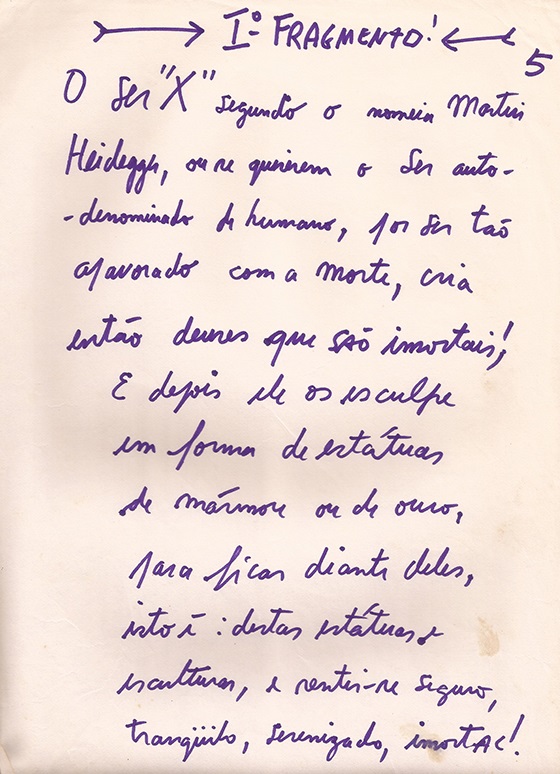 Iº FRAGMENTO!
5
O ser "X" segundo o nomeia Martin
Heidegger, ou se quiserem o Ser auto-
-denominado de humano, por ser tão
apavorado com a morte, cria
então deuses que são imortais!,
E depois ele os esculpe
em forma de estátuas
de mármore ou de ouro,
para ficar diante deles,
isto é: destas estátuas e
esculturas, e sentir-se seguro,
tranqüilo, serenizado, imortAL!